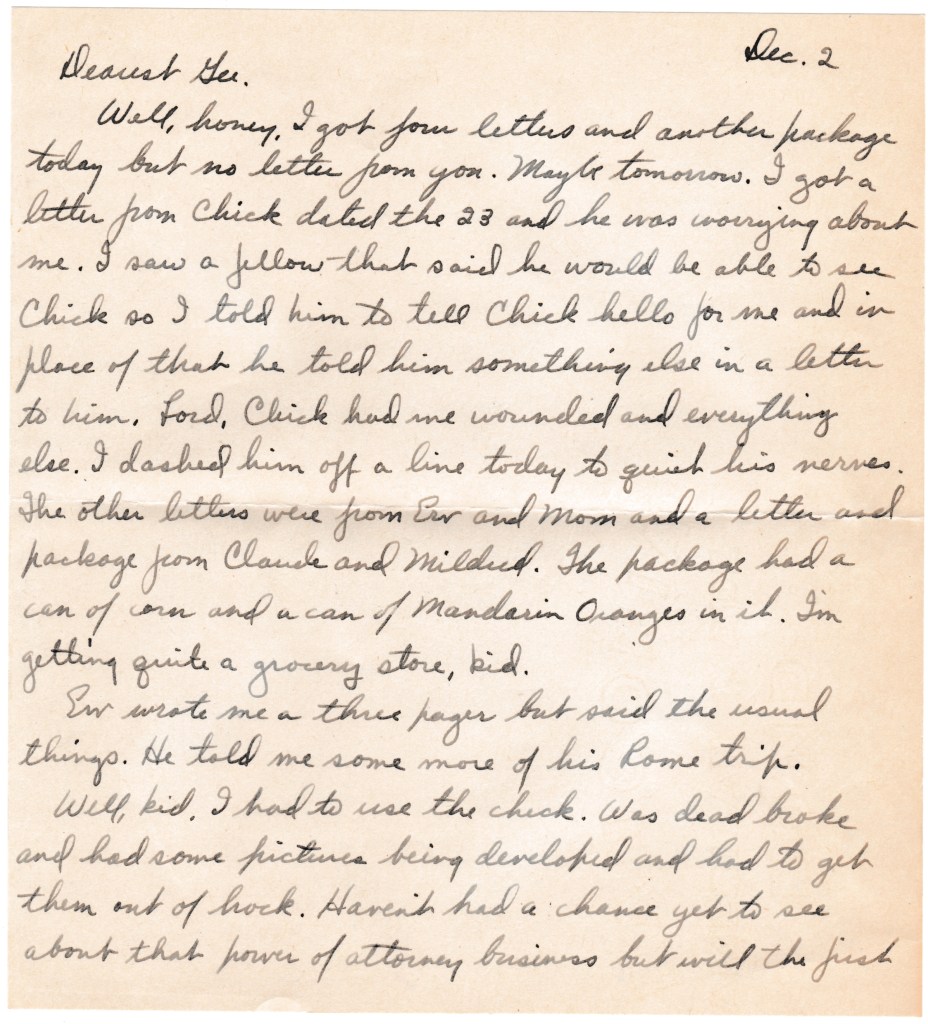 Dec. 2
Dearest Gee.
Well, honey, I got four letters and another package
today but no letter from you. Maybe tomorrow. I got a
letter from Chick dated the 23 and he was worrying about
me. I saw a fellow that said he would be able to see
Chick so I told him to tell Chick hello for me and in
place of that he told him something else in a letter
to him. Lord, Chick had me wounded and everything
else. I dashed him off a line today to quiet his nerves.
The other letters were from Erv and Mom and a letter and
package from Claude and Mildred. The package had a
can of corn and a can of Mandarin Oranges in it. I'm
getting quite a grocery store, kid.
Erv wrote me a three pager but said the usual
things. He told me some more of his Rome trip.
Well, kid, I had to use the check. Was dead broke
and had some pictures being developed and had to get
them out of hock. Haven't had a chance yet to see
about that power of attorney business but will the first